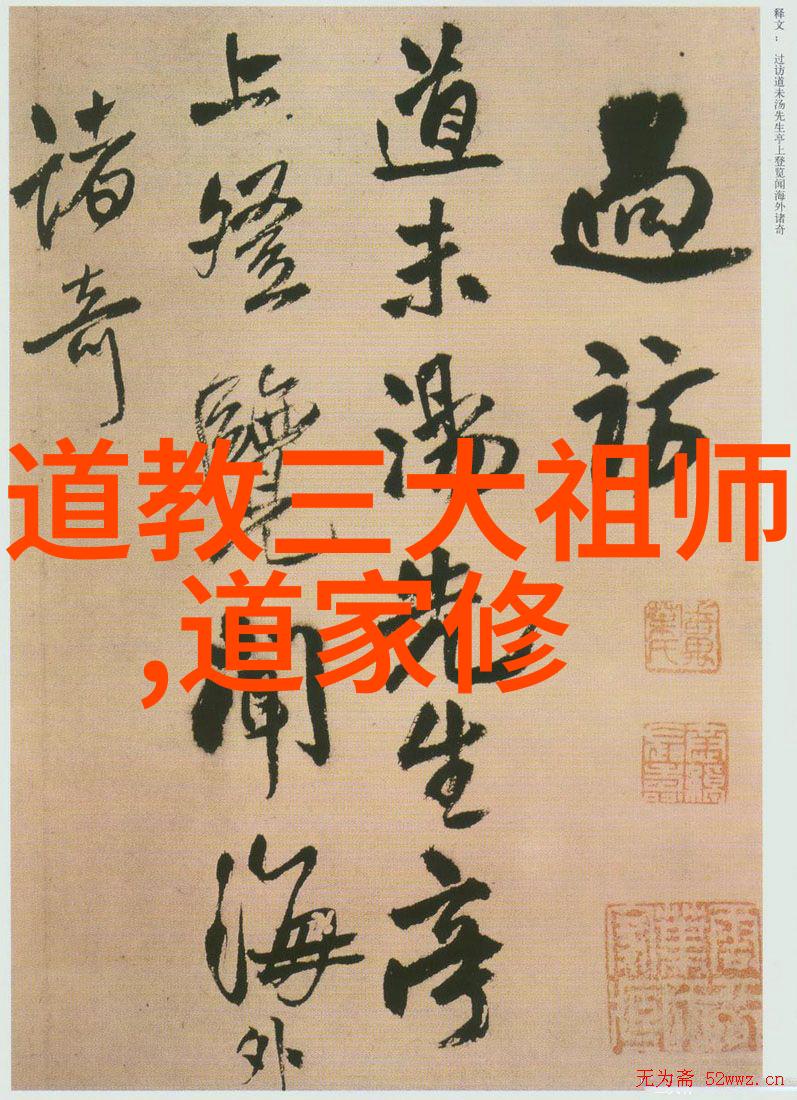 释文： 过访道未汤先生亭上登览闻海外诸奇
過訪
道未湯先生亭
上登覽聞海外
諸奇
道教三大祖师
,道家修
无为斋 52wwz.cn